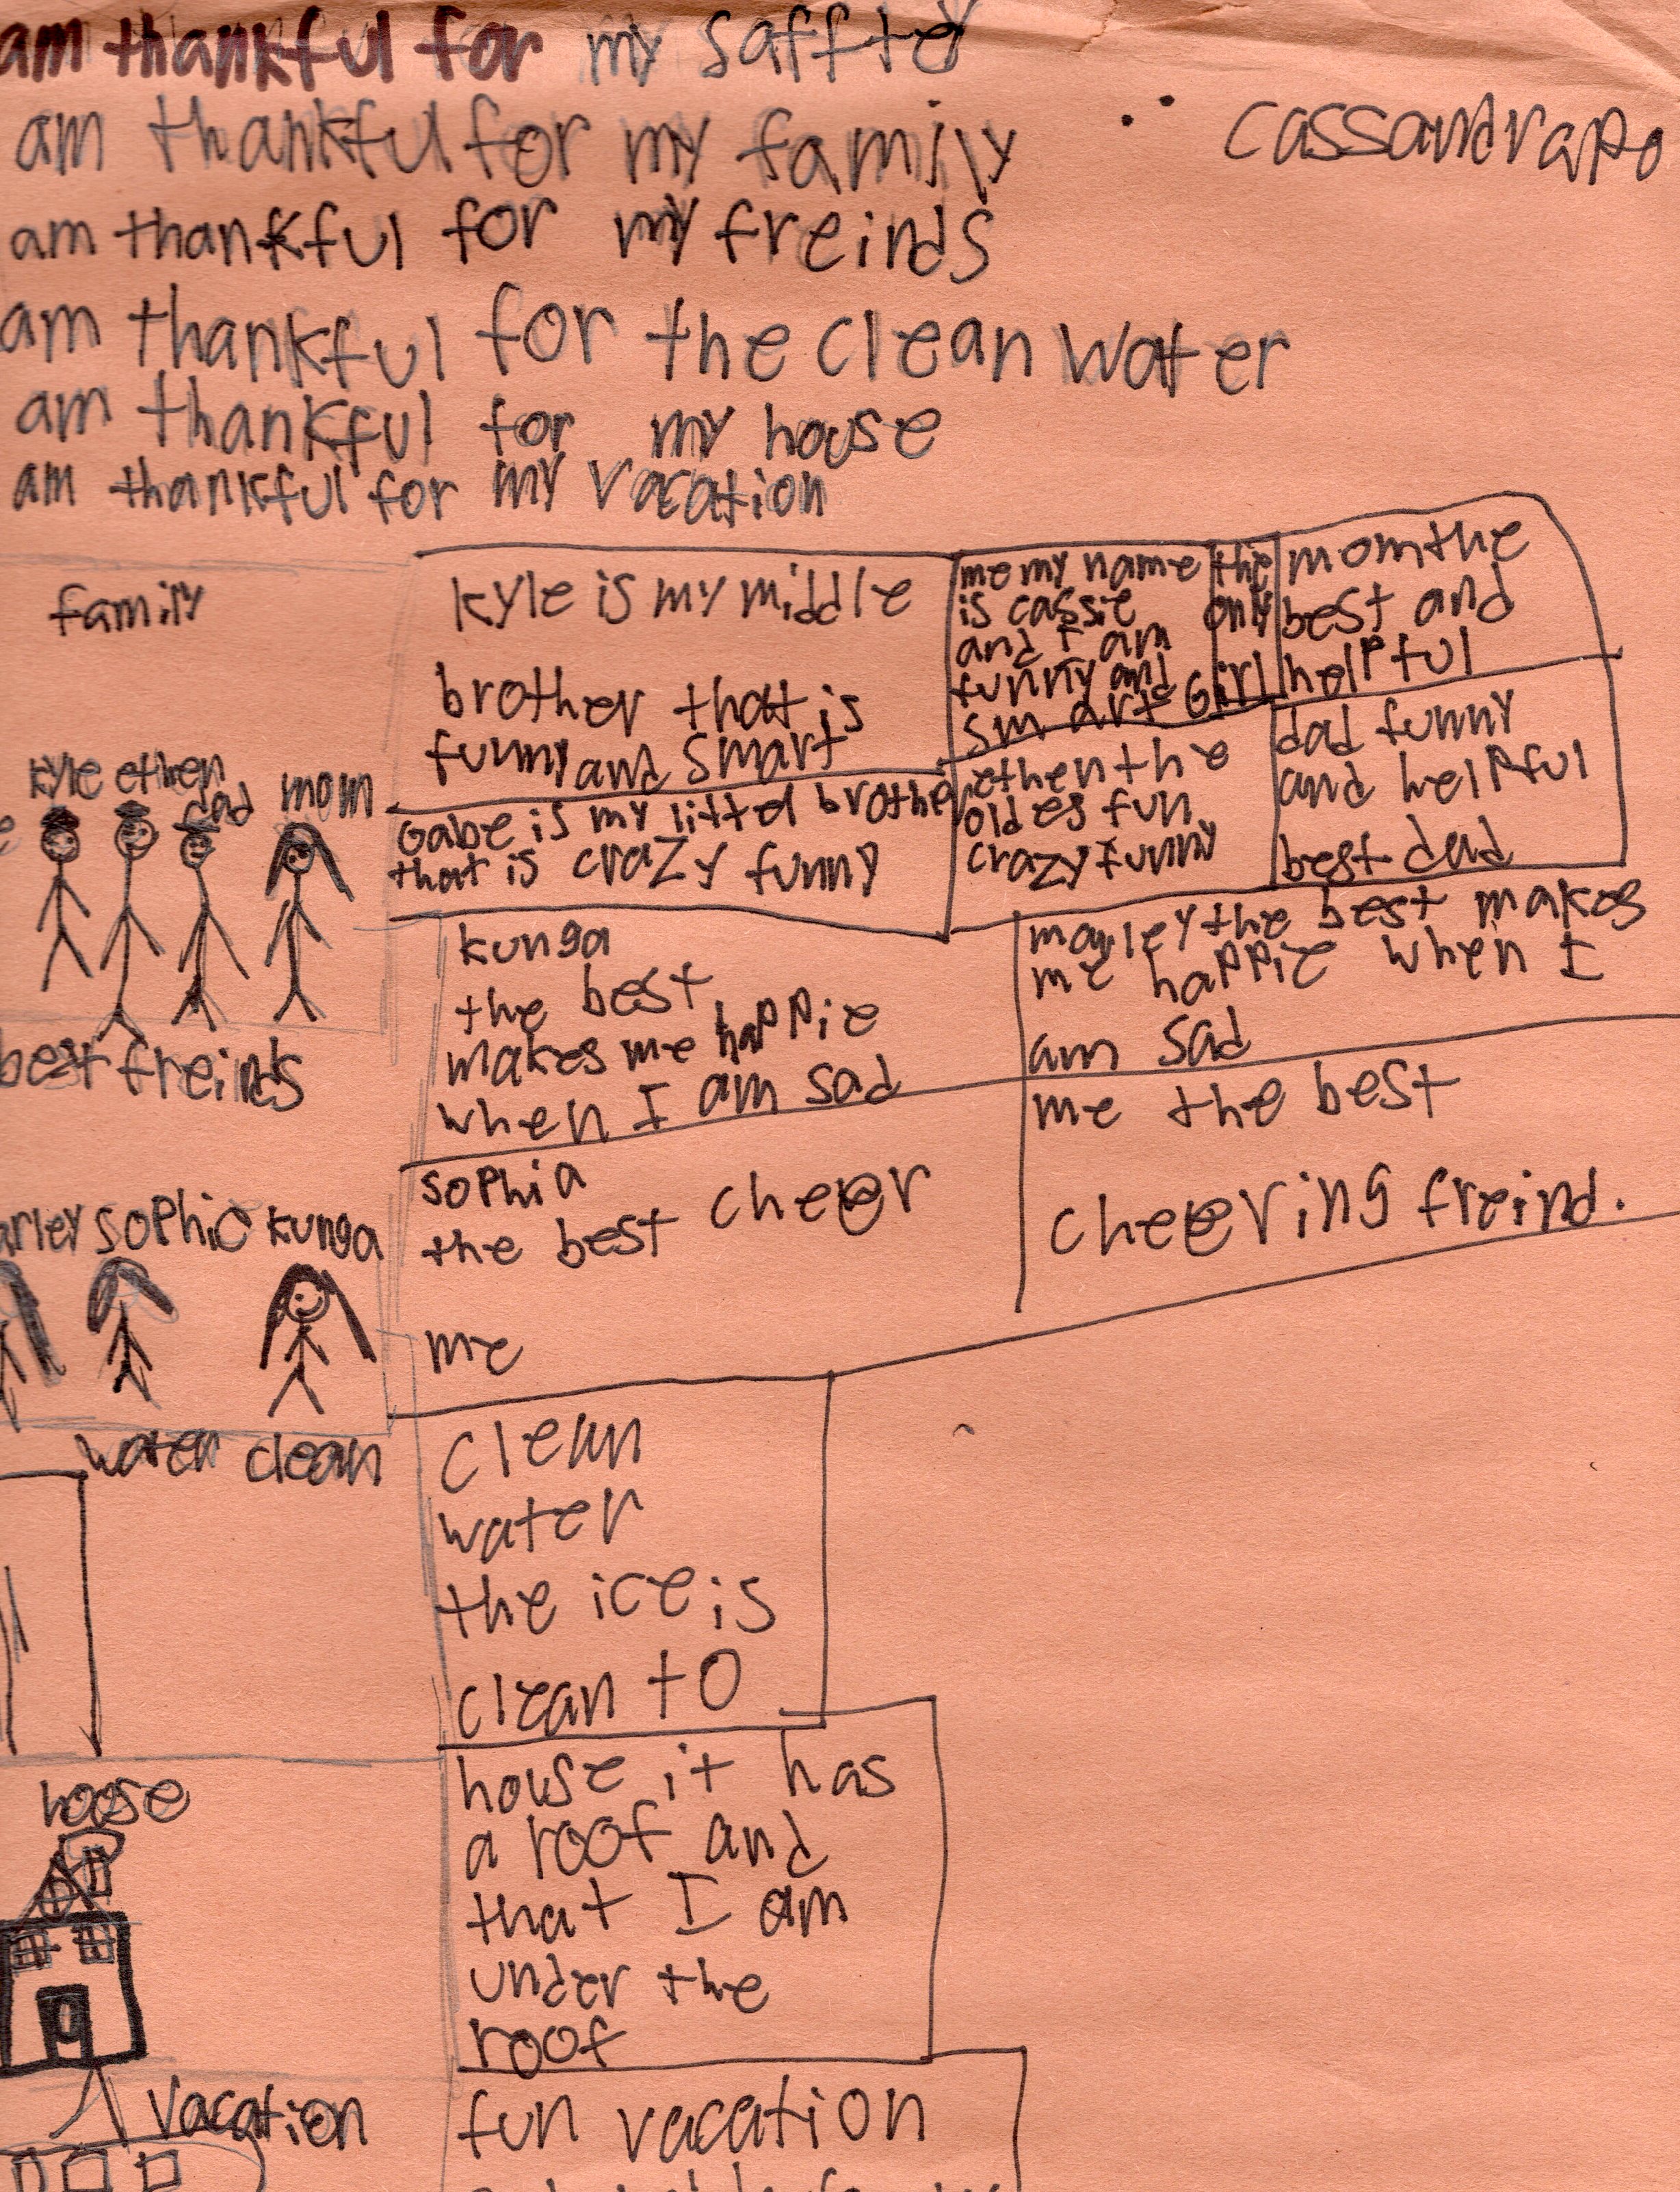 am thankful for my saffte
am thankful for my family
cassandrapo
am thankful for my freinds
am thankful for the clean water
am thankful for my house
am thankful for my vacation
family
kyle ethen
dad mom
kyle is my middle
brother that is
funny and smart
me my name
is cassie
and I am
funny and
smart
the
only
Girl
mom the
best and
helpful
Gabe is my littel brothe
that is crazy funny
ethen the
oldes fun
crazy funny
dad funny
and helpful
best dad
best freinds
kunga
the best
makes me happie
when I am sad
marley the best makes
me happie when I
am sad
arley sophia kunga
sophia
the best cheer
me
me the best
cheering freind.
water clean
clean
water
the ice is
clean to
hoose
house it has
a roof and
that I am
under the
roof
vacation
fun vacation